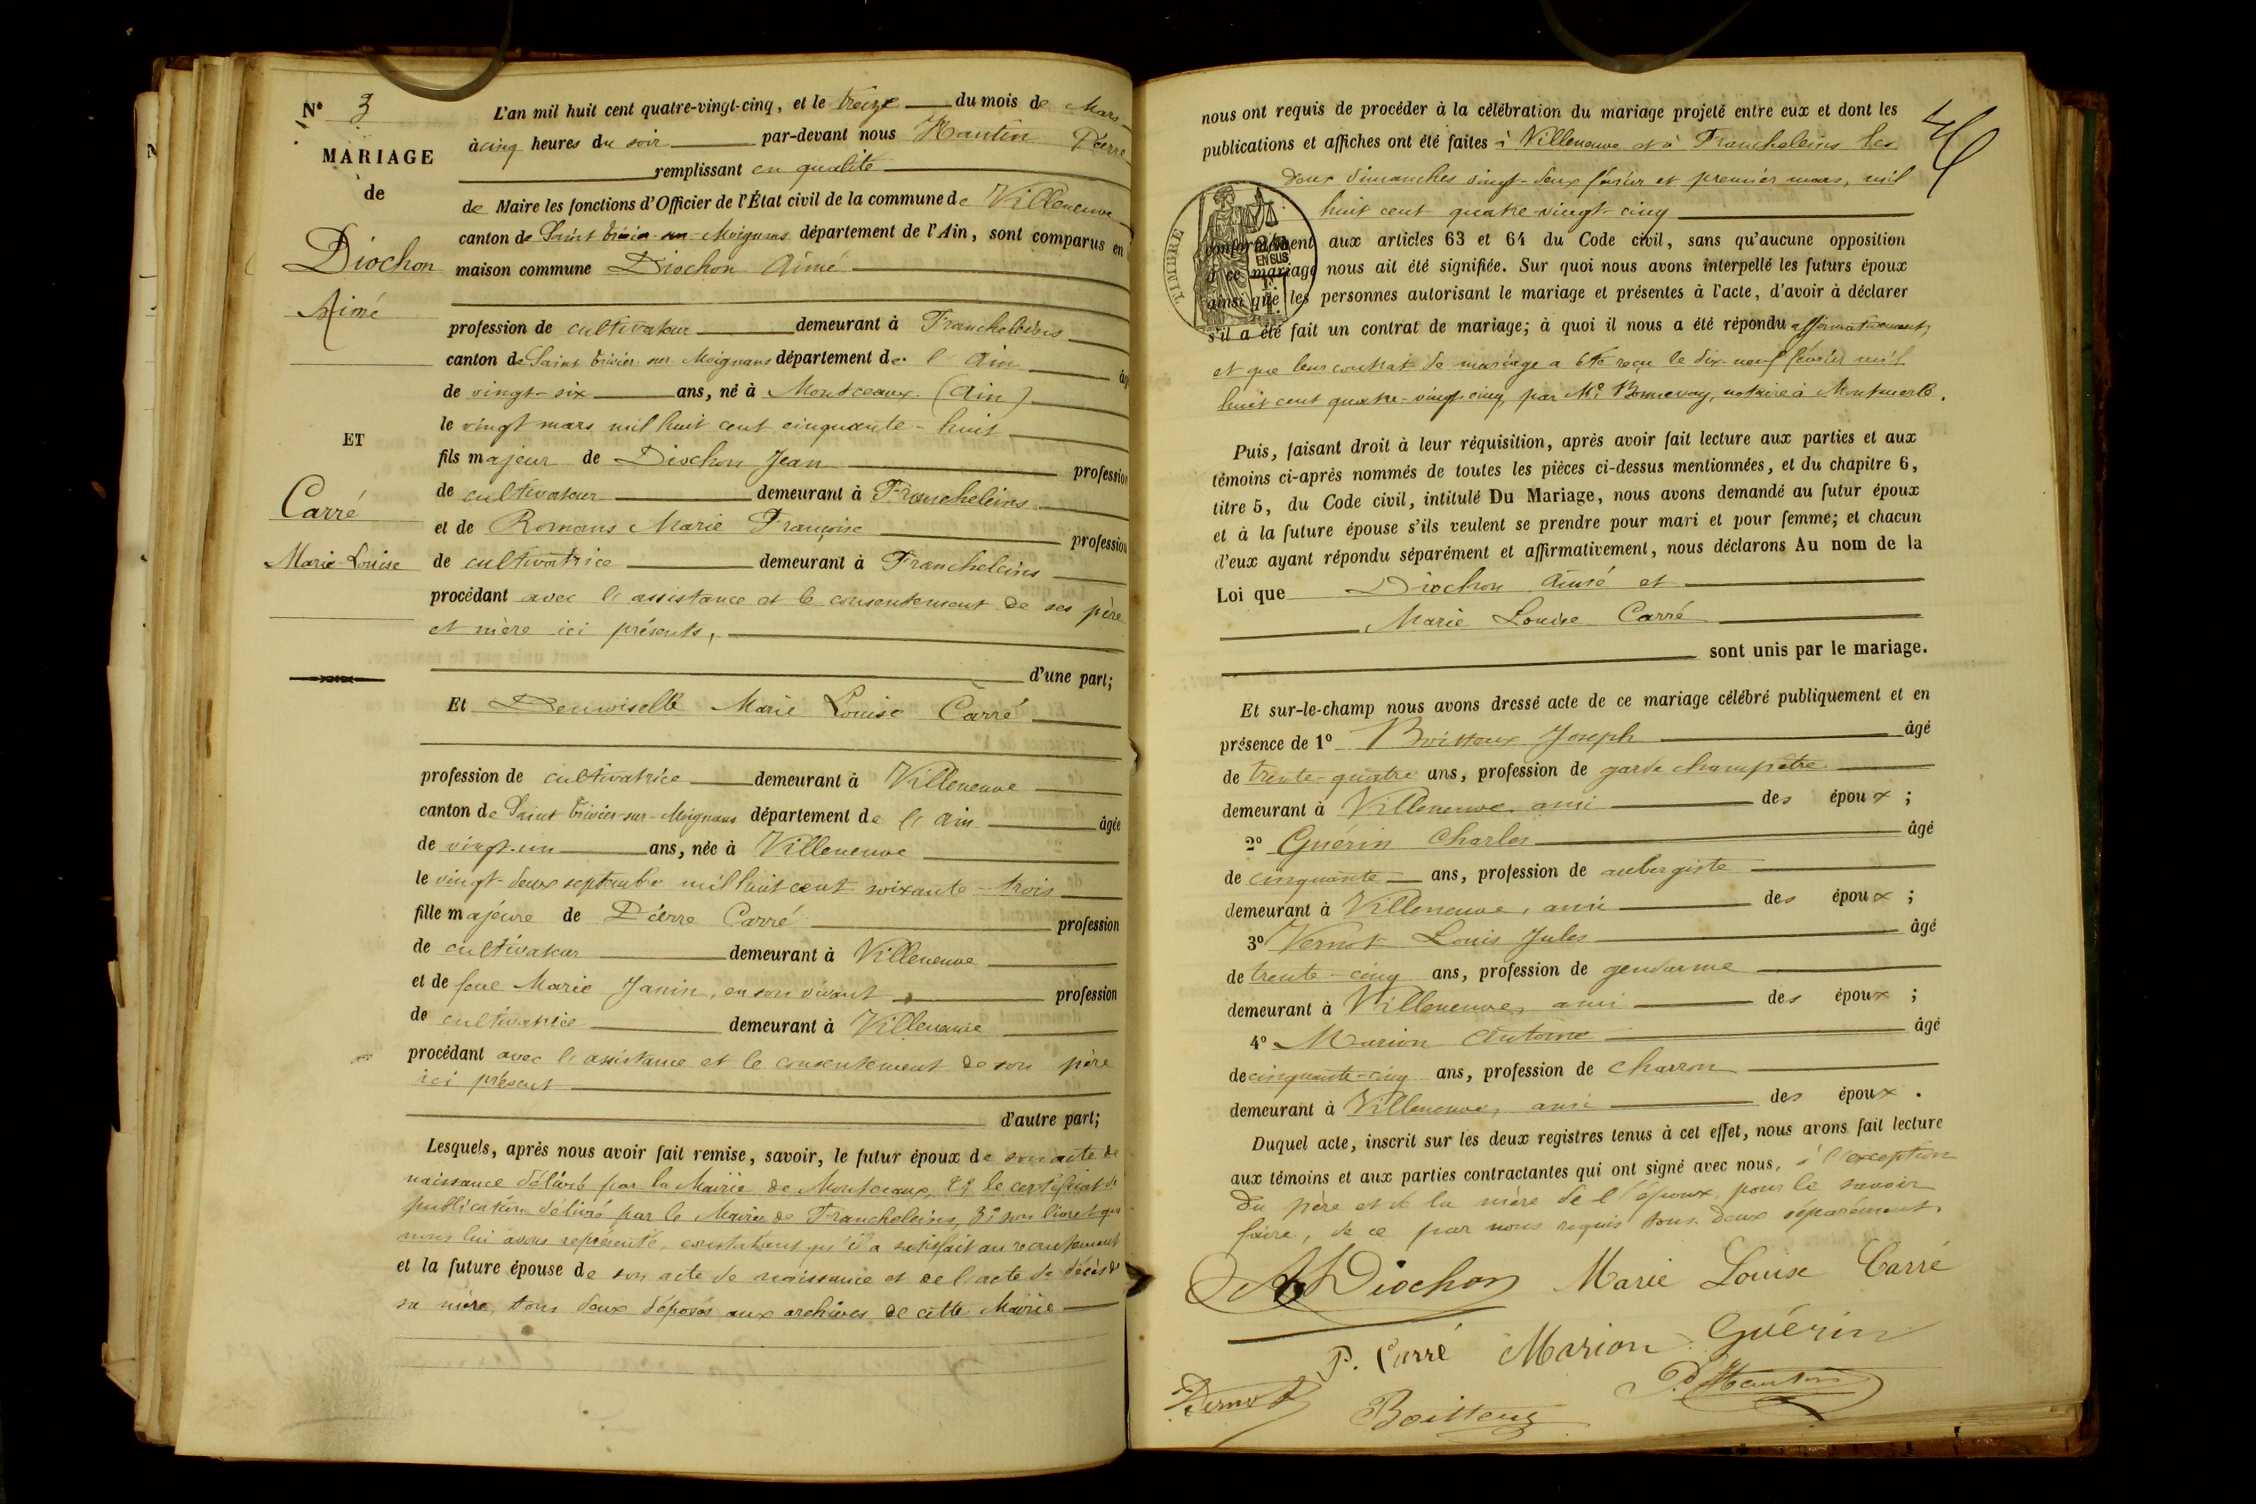 N° 3
MARIAGE
de
Diochon
Aimé
ET
Carré
Marie-Louise
L'an mil huit cent quatre-vingt-cinq, et le treize du mois de Mars
à cinq heures du soir par-devant nous Hantin Pierre
remplissant en qualité
de Maire les fonctions d'Officier de l'État civil de la commune de Villeneuve
canton de Saint Trivier-sur-Moignans département de l'Ain, sont comparus en
maison commune Diochon Aimé
profession de cultivateur demeurant à Francheleins
canton de Saint Trivier sur Moignans département de l'Ain âg
de vingt-six ans, né à Montceaux (Ain)
le vingt mars mil huit cent cinquante-huit
fils majeur de Diochon Jean profession
de cultivateur demeurant à Francheleins
et de Romans Marie Françoise profession
de cultivatrice demeurant à Francheleins
procédant avec l'assistance et le consentement de ses père
et mère ici présents,
d'une part;
Et Demoiselle Marie Louise Carré
profession de cultivatrice demeurant à Villeneuve
canton de Saint Trivier-sur-Moignans département de l'Ain âgée
de vingt-un ans, née à Villeneuve
le vingt-deux septembre mil huit cent soixante-trois
fille majeure de Pierre Carré profession
de cultivateur demeurant à Villeneuve
et de feue Marie Janin, en son vivant profession
de cultivatrice demeurant à Villeneuve
procédant avec l'assistance et le consentement de son père
ici présent
d'autre part;
Lesquels, après nous avoir fait remise, savoir, le futur époux de son acte de
naissance délivré par la Mairie de Montceaux, 2° le certificat de
publication délivré par le Maire de Francheleins, 3° son livret que
nous lui avons représenté, constatant qu'il a satisfait au recrutement
et la future épouse de son acte de naissance et de l'acte de décès de
sa mère, tous deux déposés aux archives de cette Mairie
nous ont requis de procéder à la célébration du mariage projeté entre eux et dont les
publications et affiches ont été faites à Villeneuve et à Francheleins les
deux dimanches vingt-deux février et premier mars, mil
huit cent quatre-vingt-cinq
TIMBRE
EN SUS
conformément aux articles 63 et 64 du Code civil, sans qu'aucune opposition
à ce mariage nous ait été signifiée. Sur quoi nous avons interpellé les futurs époux
ainsi que les personnes autorisant le mariage et présentes à l'acte, d'avoir à déclarer
s'il a été fait un contrat de mariage; à quoi il nous a été répondu affirmativement,
et que leur contrat de mariage a été reçu le dix-neuf février mil
huit cent quatre-vingt-cinq, par Me Bonnevay, notaire à Montmerle.
Puis, faisant droit à leur réquisition, après avoir fait lecture aux parties et aux
témoins ci-après nommés de toutes les pièces ci-dessus mentionnées, et du chapitre 6,
titre 5, du Code civil, intitulé Du Mariage, nous avons demandé au futur époux
et à la future épouse s'ils veulent se prendre pour mari et pour femme; et chacun
d'eux ayant répondu séparément et affirmativement, nous déclarons Au nom de la
Loi que Diochon Aimé et
Marie Louise Carré
sont unis par le mariage.
Et sur-le-champ nous avons dressé acte de ce mariage célébré publiquement et en
présence de 1° Boitteux Joseph âgé
de trente-quatre ans, profession de garde champêtre
demeurant à Villeneuve, ami des époux;
2° Guérin Charles âgé
de cinquante ans, profession de aubergiste
demeurant à Villeneuve, ami des époux;
3° Vernot Louis Jules âgé
de trente-cinq ans, profession de gendarme
demeurant à Villeneuve, ami des époux;
4° Marion Antoine âgé
de cinquante-cinq ans, profession de charron
demeurant à Villeneuve, ami des époux.
Duquel acte, inscrit sur les deux registres tenus à cet effet, nous avons fait lecture
aux témoins et aux parties contractantes qui ont signé avec nous, à l'exception
du père et de la mère de l'époux, pour le savoir
faire, de ce par nous requis tous deux séparément.
A Diochon Marie Louise Carré
P. Carré Marion Guérin
Vernot Boitteux P. Hantin